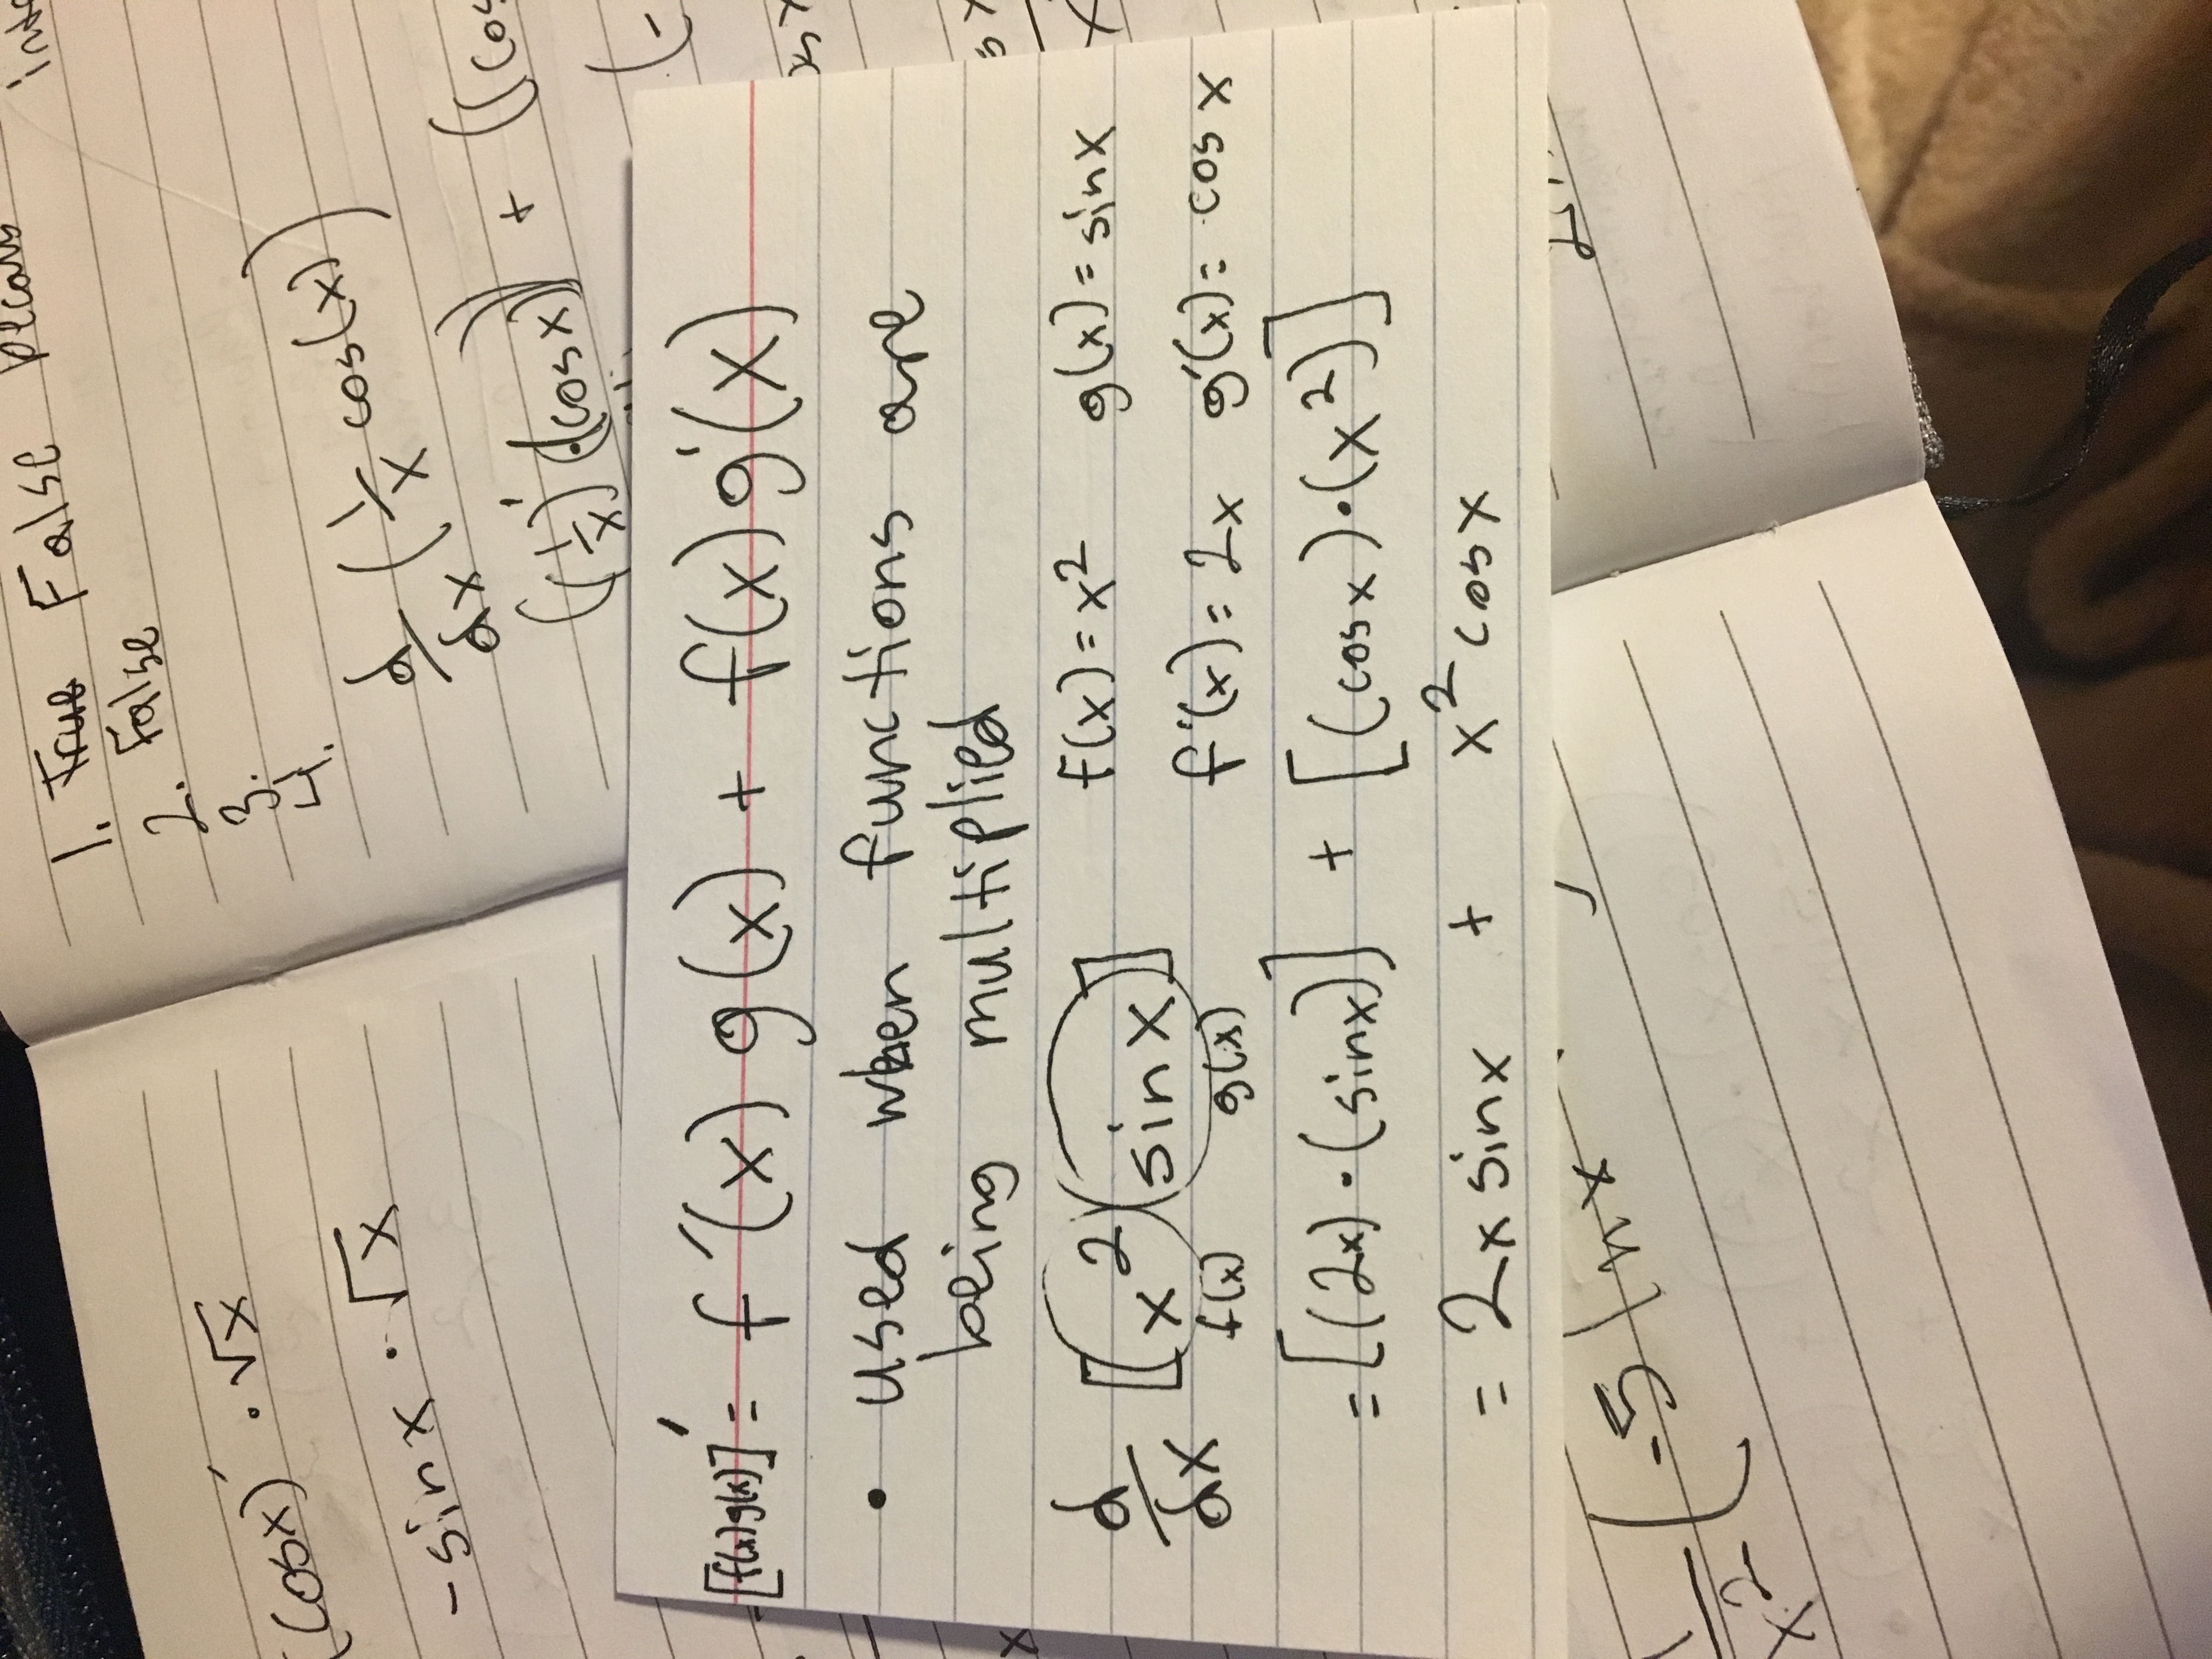 (cosx)' · √x
-sinx · √x
1. True False
2. False
3.
4.
d/dx (1/x cos(x))
((1/x)' · (cosx)) + ((cos
(-
[f(x)g(x)]' = f'(x) g(x) + f(x) g'(x)
• used when functions are
being multiplied
d/dx [(x²)(sinx)] f(x) = x² g(x) = sinx
f(x) g(x) f'(x) = 2x g'(x) = cos x
= [(2x) · (sinx)] + [(cosx) · (x²)]
= 2x sinx + x² cosx
1/x² (-5 lnx